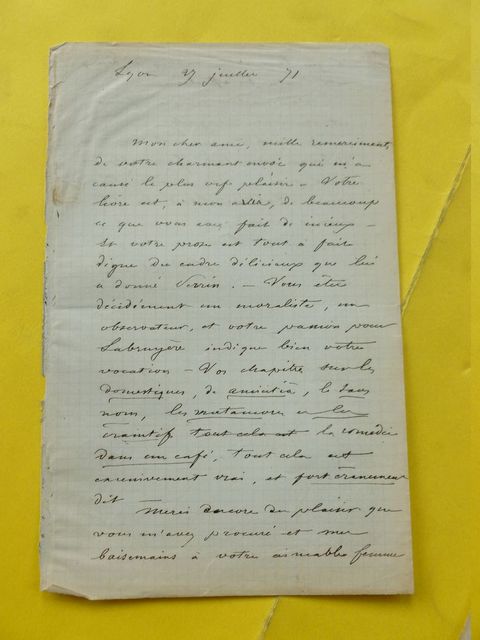 Lyon 27 juillet 71
Mon cher ami, mille remerciments
de votre charmant envoi qui m'a
causé le plus vif plaisir – Votre
livre est, à mon avis, de beaucoup
ce que vous avez fait de mieux –
Et votre prose est tout à fait
digne du cadre délicieux que lui
a donné Perrin. – Vous êtes
décidément un moraliste, un
observateur, et votre passion pour
Labruyère indique bien votre
vocation – Vos chapitres sur les
domestiques, de amicitiâ, le
nom, les et les
tout cela est la comédie
dans un café, tout cela est
excessivement vrai, et fort
dit
Merci encore du plaisir que
vous m'avez procuré et mes
baisemains à votre aimable femme